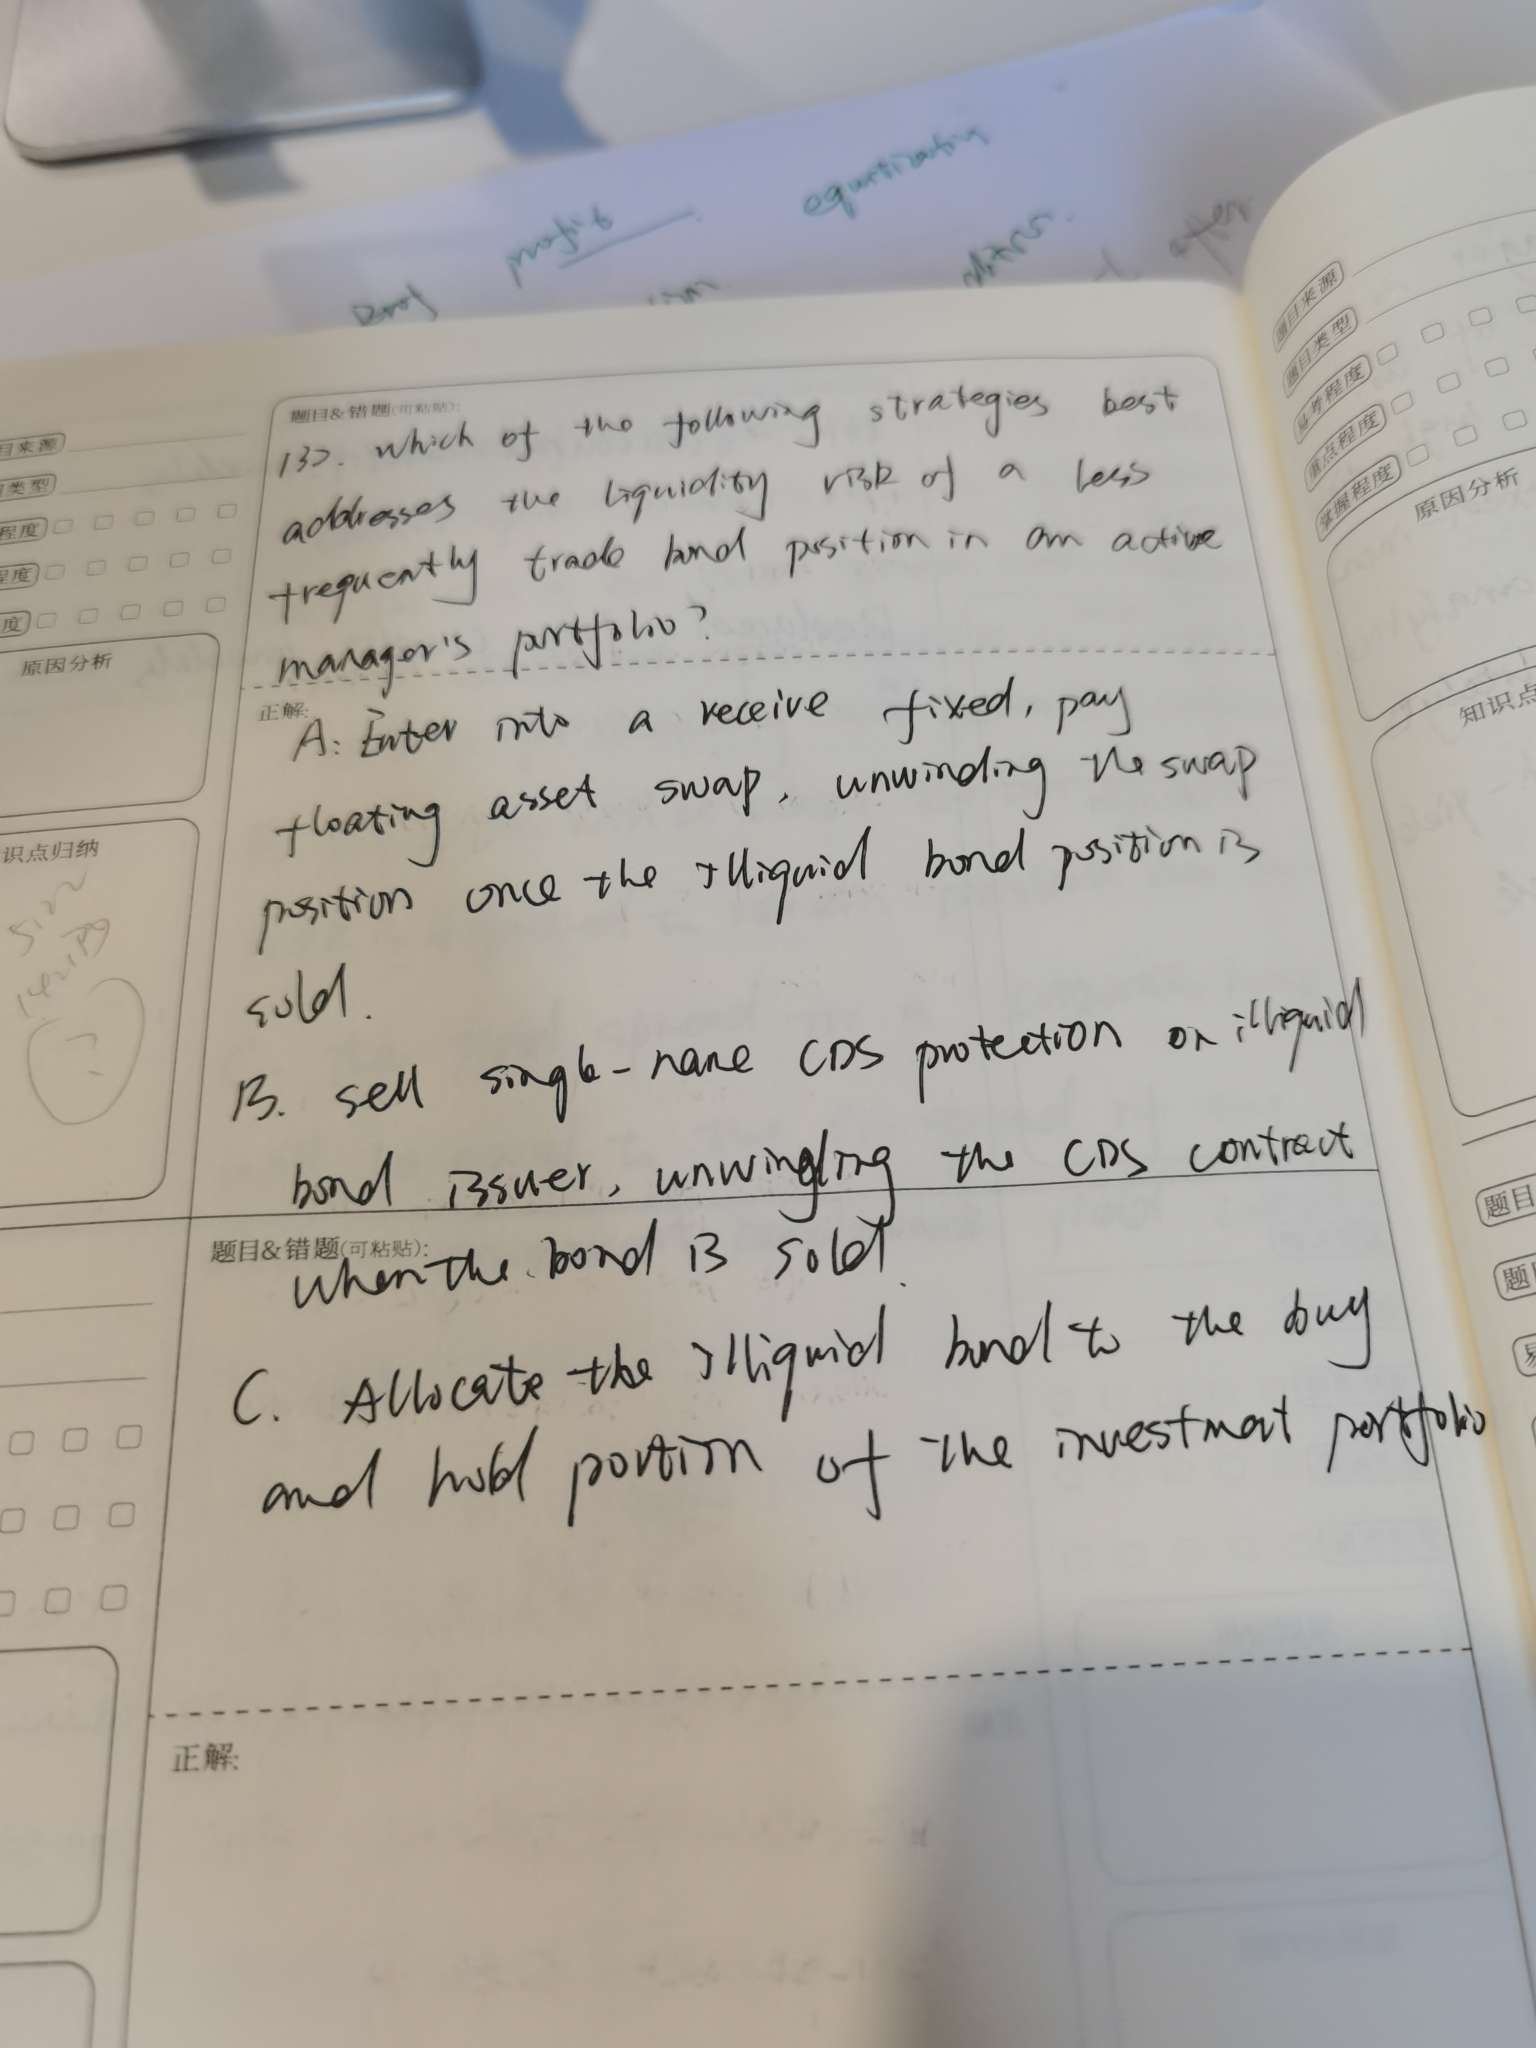 profit
equitization
after
题目来源
题目类型
重点程度
掌握程度
原因分析
知识点
题目
目来源
类型
程度
程度
度
原因分析
识点归纳
题目&错题(可粘贴):
132. which of the following strategies best
addresses the liquidity risk of a less
frequently trade bond position in an active
manager's portfolio?
正解:
A: Enter into a receive fixed, pay
floating asset swap, unwinding the swap
position once the illiquid bond position is
sold.
B. sell single-name CDS protection on illiquid
bond issuer, unwingling the CDS contract
题目&错题(可粘贴):
when the bond is sold.
C. Allocate the illiquid bond to the buy
and hold portion of the investmat portfolio
正解: